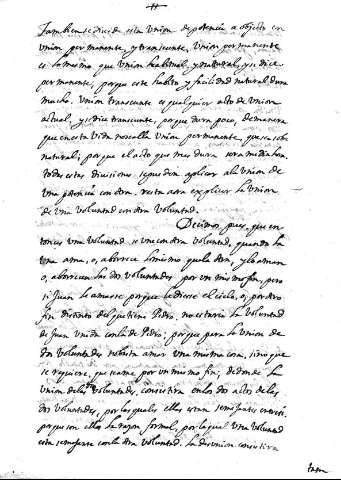 Tambien se divide esta Union de potencia a objeto en
union permanente, y transeunte, Union permanente
es la misma que Union habitual, y natural, y se dice
permanente; porque este habito y facilidad natural dura
mucho. Union transeunte es qualquier acto de Union
actual, y se dice transeunte, porque dura poco, de manera
que en esta vida no se halla Union permanente, que sea sobre
natural; porque el acto que mas dura sera media hora.
todas estas divisiones se pueden aplicar a la Union de
una potencia con otra. resta aora explicar la Union
de una Voluntad con otra Voluntad.
Decimos, pues, que en
tonces una voluntad se une con otra Voluntad, quando la
una ama, o, aborrece lo mismo que la otra, y lo aman
o, aborrecen las dos Voluntades por un mismo fin, pero
si Juan lo amasse porque le diesse el cielo, o, por otro
fin distinto del que tiene Pedro, no estaria la Voluntad
de Juan unida con la de Pedro; porque para la Union de
dos Voluntades no basta amar una misma cosa, sino que
se requiere, que se ama por un mismo fin; de donde la
Union de las Voluntades, consistira en los dos actos de las
dos Voluntades, por los quales ellas estan semejantes entre si.
porque son ellos la razon formal, por la qual una Voluntad
esta semejante con la otra Voluntad. la desunion consistira
tam